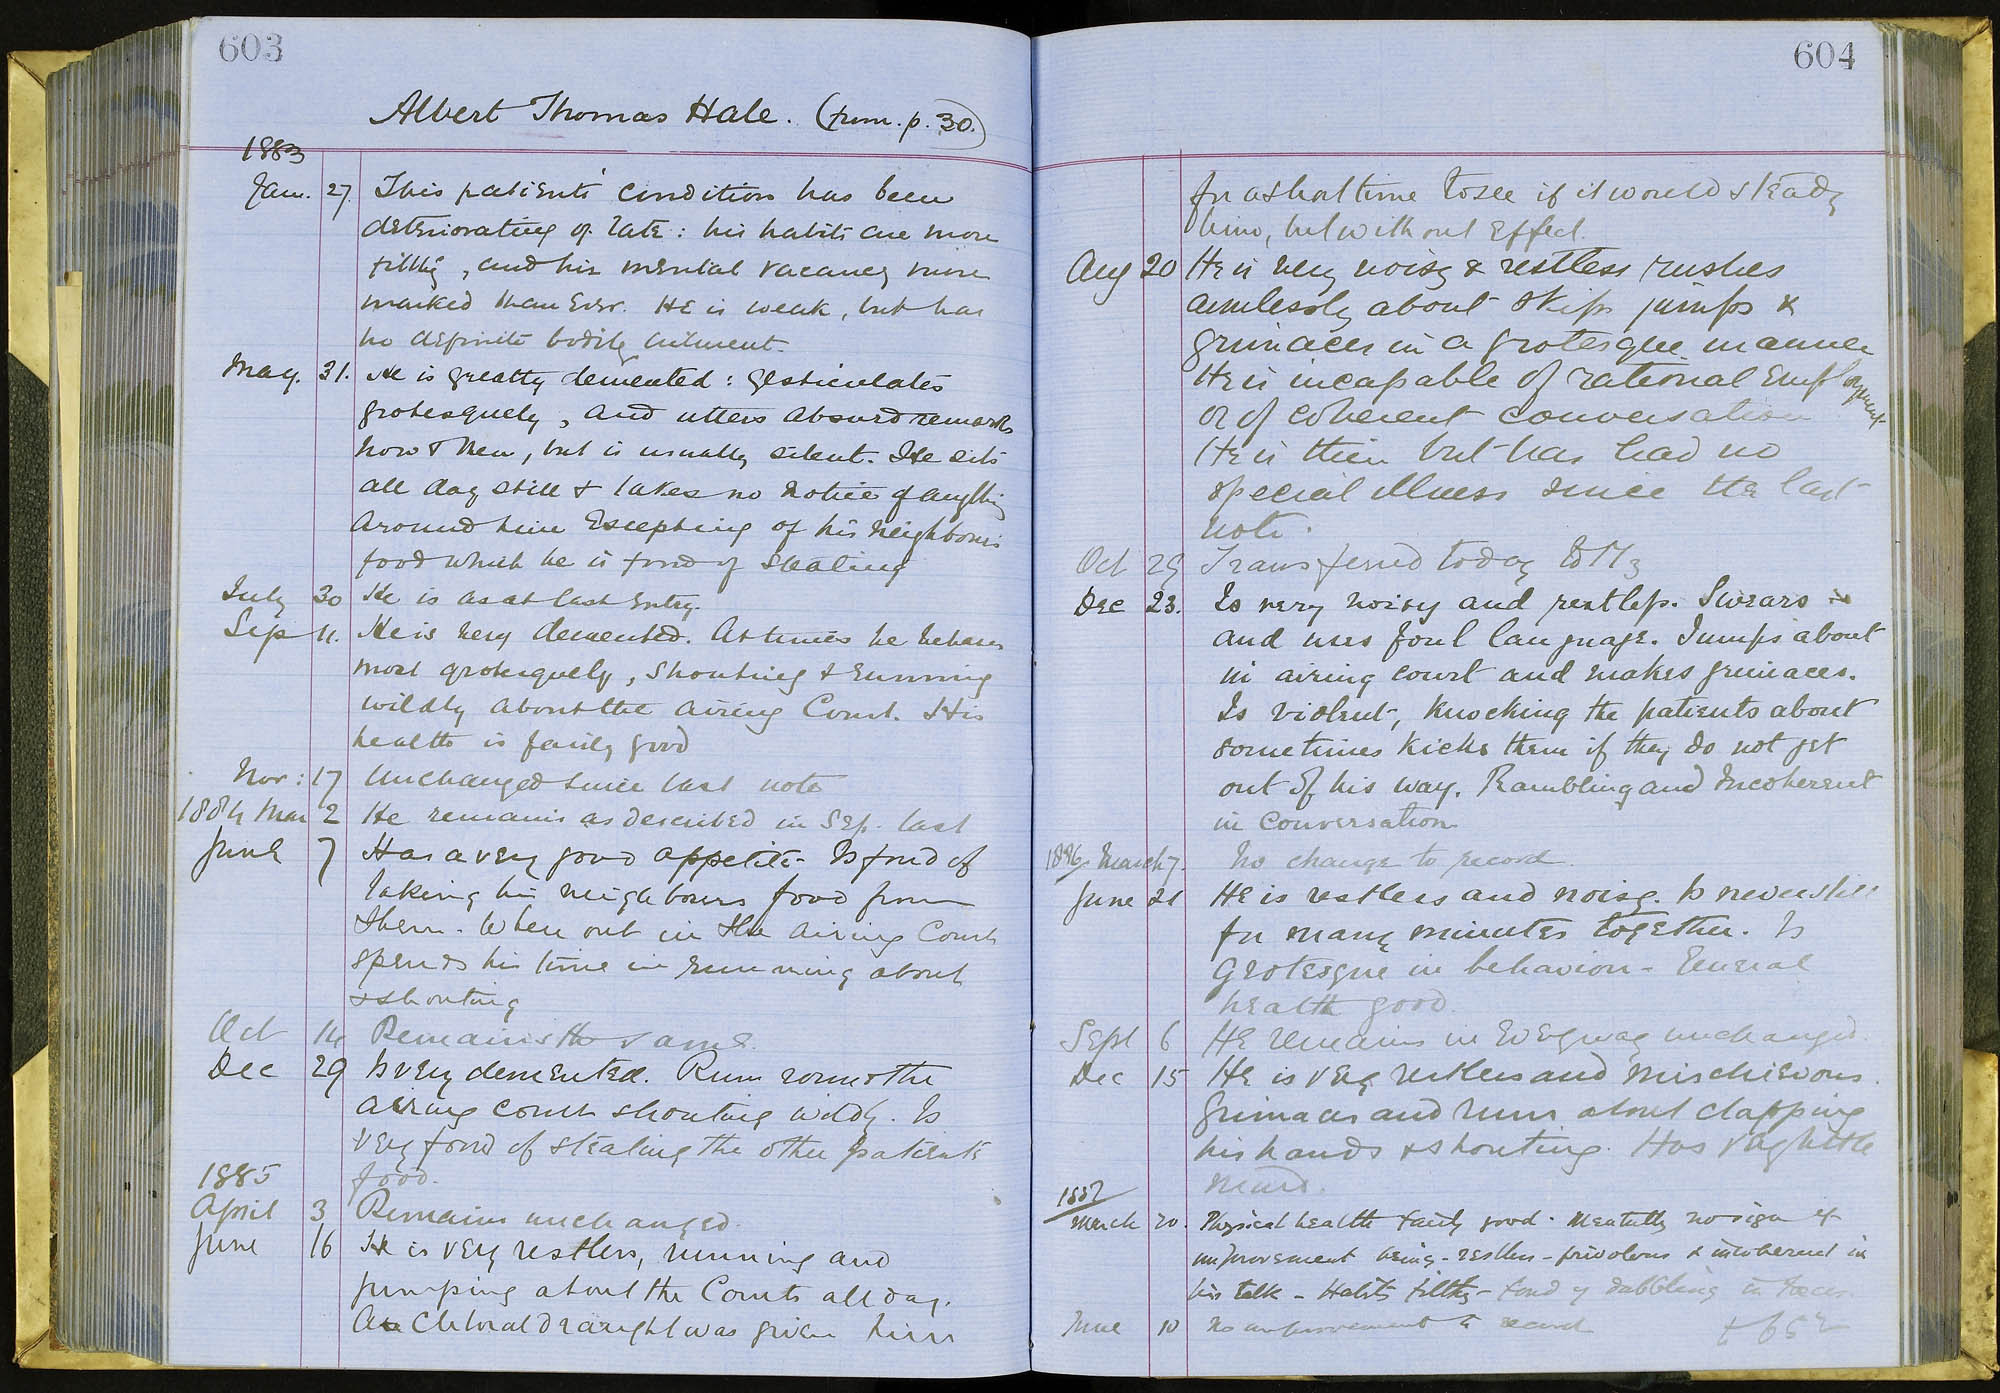 603
Albert Thomas Hale. (from. p. 30.)
1883
Jan. 27. This patients' condition has been
deteriorating of late: his habits are more
filthy, and his mental vacancy more
marked than Ever. HE is weak, but has
no definite bodily ailment.
May. 31. He is greatly demented: gesticulates
grotesquely, and utters absurd remarks
now & then, but is usually silent. He sits
all day still & takes no notice of anything
around him Excepting of his neighbours
food which he is fond of stealing
July 30 He is as at last Entry.
Sep 11. He is very demented. At times he behaves
most grotesquely, shouting & running
wildly about the airing Court. His
health is fairly good
Nov: 17 Unchanged since last note
1884 Mar 2 He remains as described in Sep. last
June 7 Has a very good appetite. Is fond of
taking his neighbours food from
them. When out in the airing Court
spends his time in running about
& shouting
Oct 14 Remains the same.
Dec 29 Is very demented. Runs round the
airing court shouting wildly. Is
very fond of stealing the other patients
food.
1885
April 3 Remains unchanged.
June 16 He is very restless, running and
jumping about the Courts all day.
A Chloral draught was given him
604
for a short time to see if it would steady
him, but without Effect.
Aug 20 He is very noisy & restless rushes
aimlessly about skips jumps &
grimaces in a grotesque manner
He is incapable of rational Employment
or of coherent conversation
He is thin but has had no
special illness since the last
note.
Oct 29 Transferred today to M3
Dec 23. Is very noisy and restless. Swears
and uses foul language. Jumps about
in airing court and makes grimaces.
Is violent, knocking the patients about
sometimes kicks them if they do not get
out of his way. Rambling and Incoherent
in conversation
1886 March 7. No change to record.
June 21 HE is restless and noisy. Is never still
for many minutes together. Is
grotesque in behavior - General
health good.
Sept 6 HE remains in Everyway unchanged.
Dec 15 HE is very restless and mischievous.
Grimaces and runs about clapping
his hands & shouting. Has very little
mind.
1887
March 20. Physical health fairly good. Mentally no sign of
improvement being - restless - frivolous & incoherent in
his talk - Habits filthy - fond of dabbling in faeces.
June 10 No improvement to record